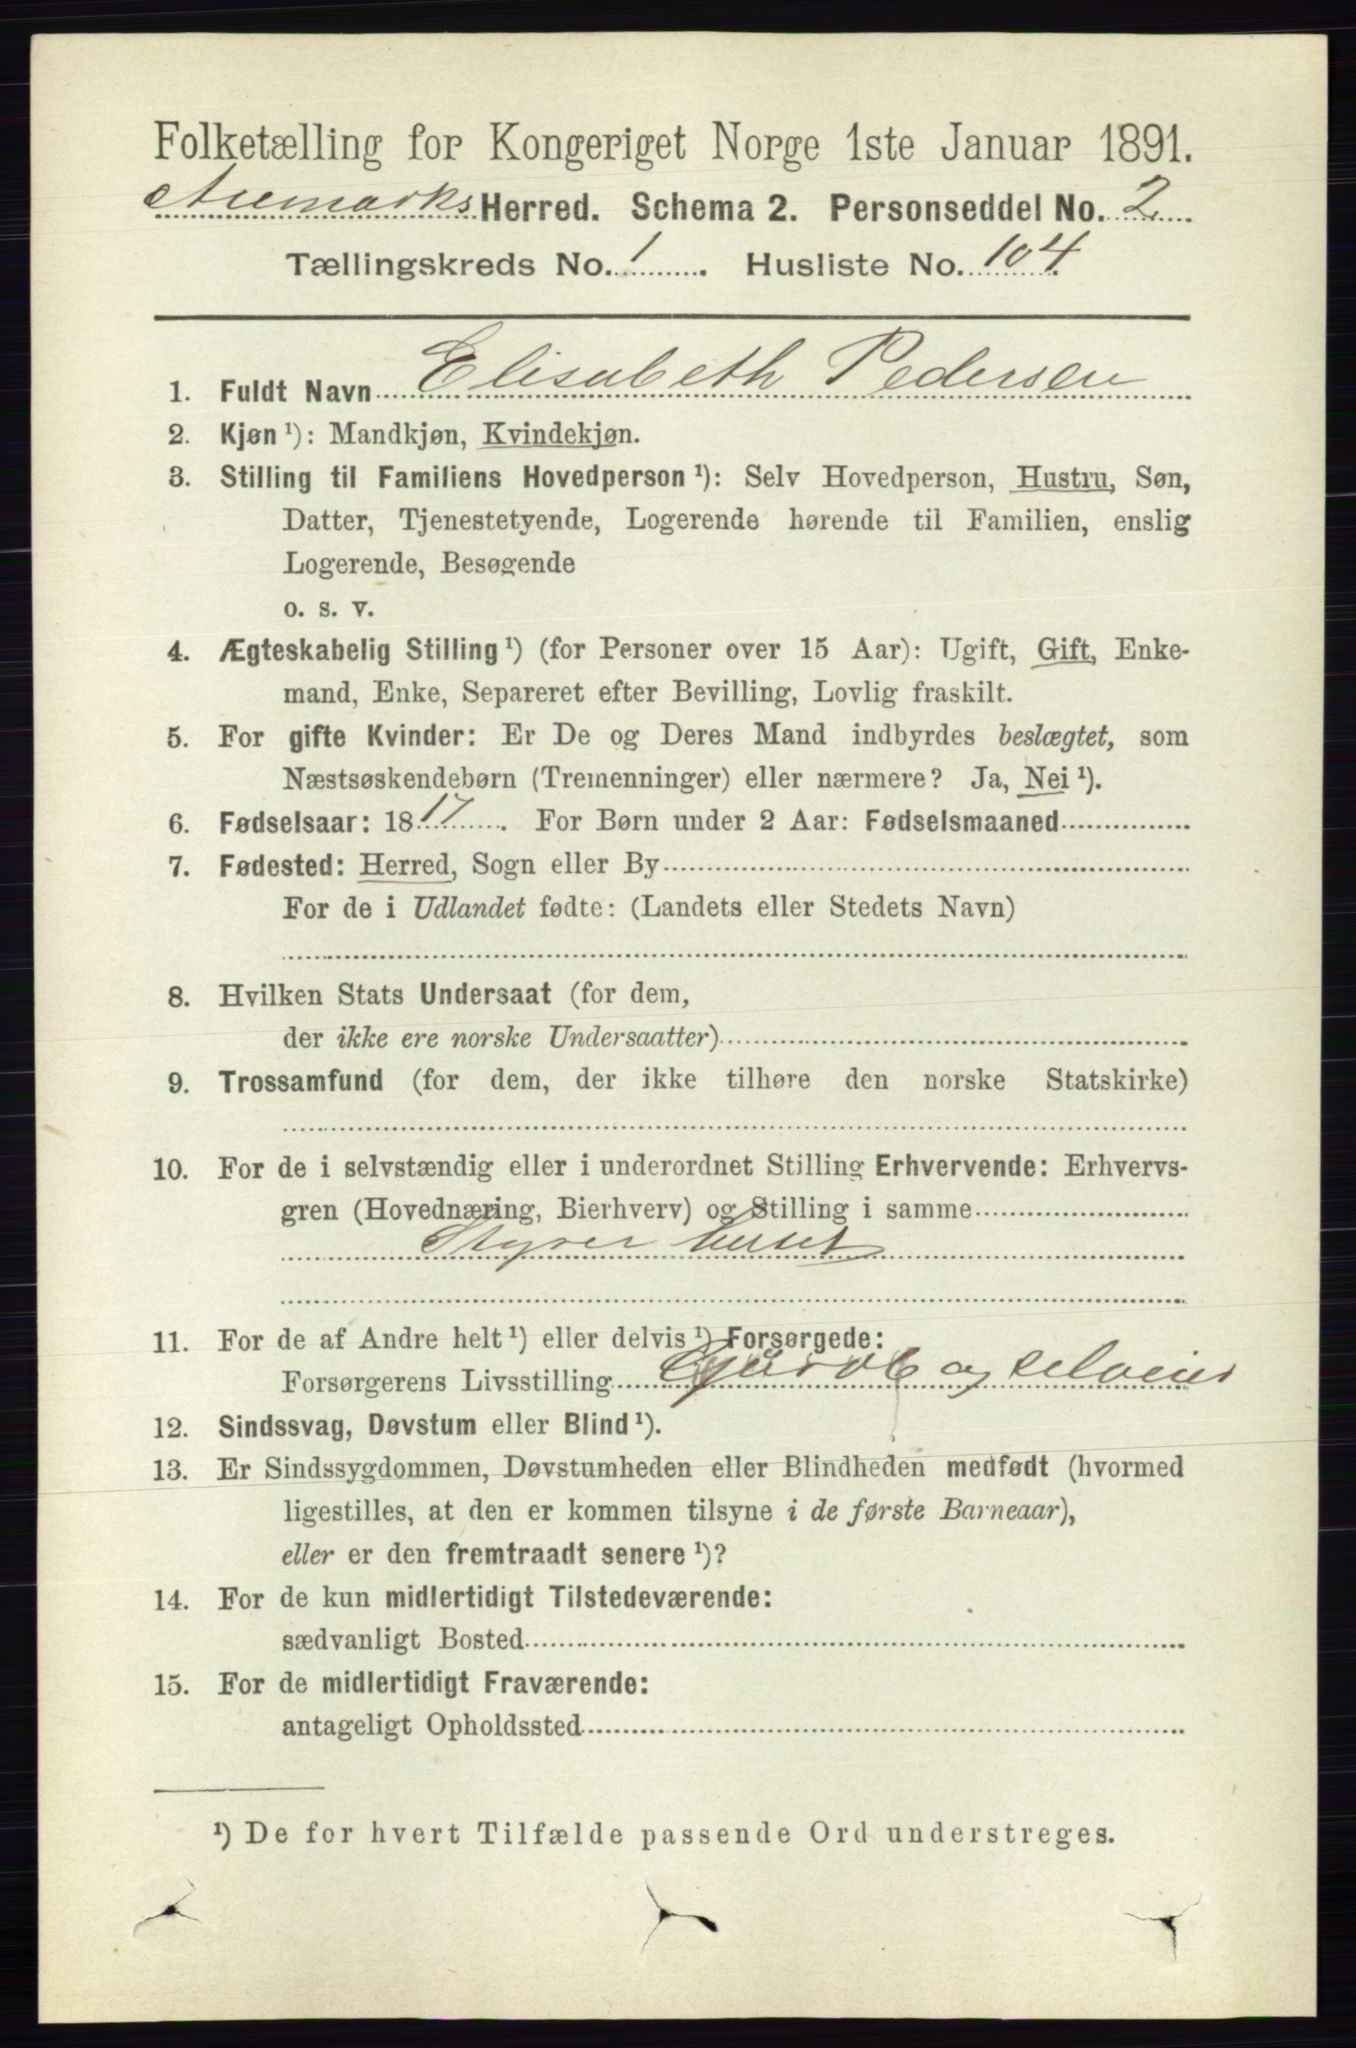 Folketælling for Kongeriget Norge 1ste Januar 1891.
Aremarks Herred. Schema 2. Personseddel No. 2
Tællingskreds No. 1. Husliste No. 104.
1. Fuldt Navn Elisabeth Pedersen
2. Kjøn ¹): Mandkjøn, Kvindekjøn.
3. Stilling til Familiens Hovedperson ¹): Selv Hovedperson, Hustru, Søn,
Datter, Tjenestetyende, Logerende hørende til Familien, enslig
Logerende, Besøgende
o. s. v.
4. Ægteskabelig Stilling ¹) (for Personer over 15 Aar): Ugift, Gift, Enke-
mand, Enke, Separeret efter Bevilling, Lovlig fraskilt.
5. For gifte Kvinder: Er De og Deres Mand indbyrdes beslægtet, som
Næstsøskendebørn (Tremenninger) eller nærmere? Ja, Nei ¹).
6. Fødselsaar: 1817. For Børn under 2 Aar: Fødselsmaaned
7. Fødested: Herred, Sogn eller By
For de i Udlandet fødte: (Landets eller Stedets Navn)
8. Hvilken Stats Undersaat (for dem,
der ikke ere norske Undersaatter)
9. Trossamfund (for dem, der ikke tilhøre den norske Statskirke)
10. For de i selvstændig eller i underordnet Stilling Erhvervende: Erhvervs-
gren (Hovednæring, Bierhverv) og Stilling i samme
Styrer huset
11. For de af Andre helt ¹) eller delvis ¹) Forsørgede:
Forsørgerens Livsstilling Gaardb og selveier
12. Sindssvag, Døvstum eller Blind ¹).
13. Er Sindssygdommen, Døvstumheden eller Blindheden medfødt (hvormed
ligestilles, at den er kommen tilsyne i de første Barneaar),
eller er den fremtraadt senere ¹)?
14. For de kun midlertidigt Tilstedeværende:
sædvanligt Bosted
15. For de midlertidigt Fraværende:
antageligt Opholdssted
¹) De for hvert Tilfælde passende Ord understreges.